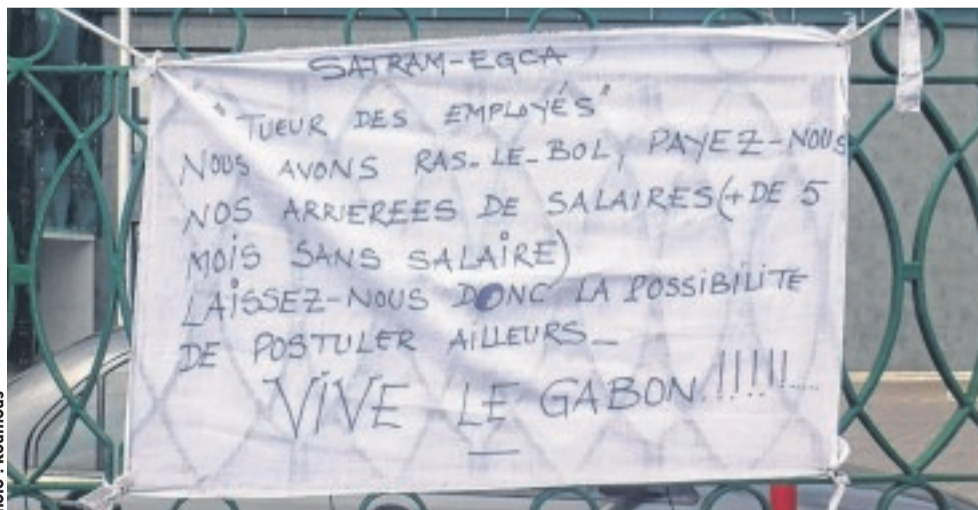 SATRAM-EGCA
"TUEUR DES EMPLOYÉS"
NOUS AVONS RAS-LE-BOL, PAYEZ-NOUS
NOS ARRIEREES DE SALAIRES (+ DE 5
MOIS SANS SALAIRE)
LAISSEZ-NOUS DONC LA POSSIBILITE
DE POSTULER AILLEURS_
VIVE LE GABON.!!!!!....